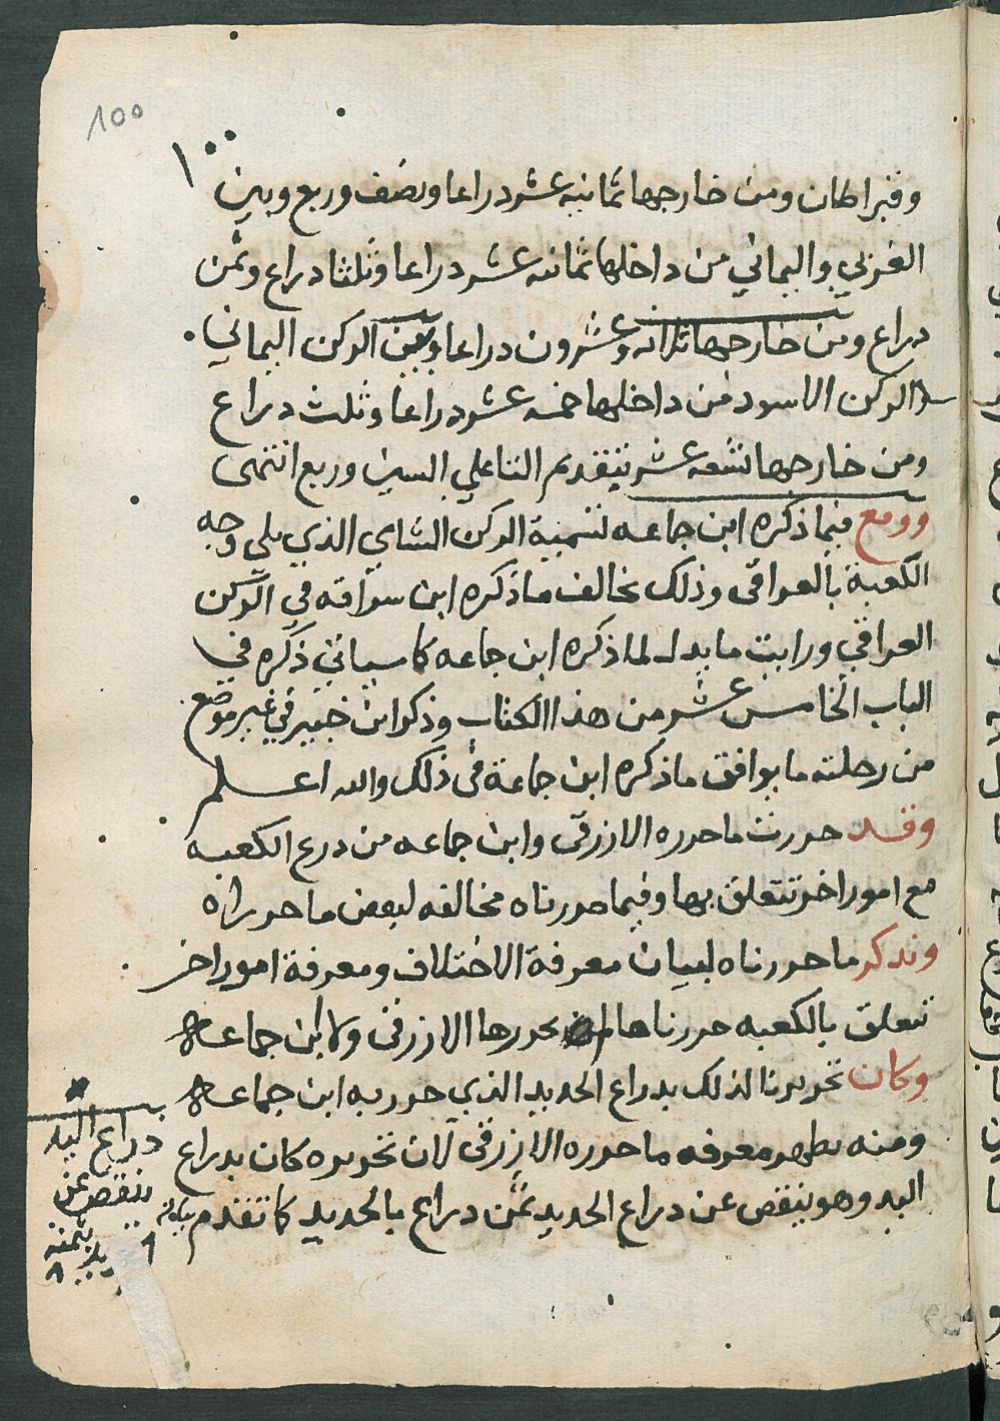 100
١٠٠
وقيراطان ومن خارجها ثمانيه عشر دراعا ونصف وربع وبين
الغربي واليماني من داخلها ثمانيه عشر دراعا وثلثا دراع وثمن
دراع ومن خارجها ثلاثه وعشرون دراعا وبين الركن اليماني
والركن الاسود من داخلها خمسه عشر دراعا وثلث دراع
ومن خارجها تسعه عشر بتقديم التا علي السين وربع انتهى
ووقع فيما ذكره ابن جماعه تسمية الركن الشامي الذي يلي وجه
الكعبة بالعراقي وذلك يخالف ما ذكره ابن سراقه في الركن
العراقي ورايت ما يدل لما ذكره ابن جماعه كما سياتي ذكره في
الباب الخامس عشر من هذا الكتاب وذكر ابن جبير في غير موضع
من رحلته ما يوافق ما ذكره ابن جماعة في ذلك والله اعلم
وقد حررت ما حرره الازرقي وابن جماعه من درع الكعبه
مع امور اخر تتعلق بها وفيما حررناه مخالفه لبعض ما حرراه
وندكر ما حررناه لبيان معرفة الاختلاف ومعرفة امور اخر
تتعلق بالكعبه حررناها يحررها الازرقي ولا ابن جماعه
وكان تحريرنا لذلك بدراع الحديد الذي حرر به ابن جماعه
ومنه يظهر معرفه ما حرره الازرقي لان تحريره كان بدراع
اليد وهو ينقص عن دراع الحديد ثمن دراع بالحديد كما تقدم بيانه
دراع اليد
ينقص عن
بثمنه